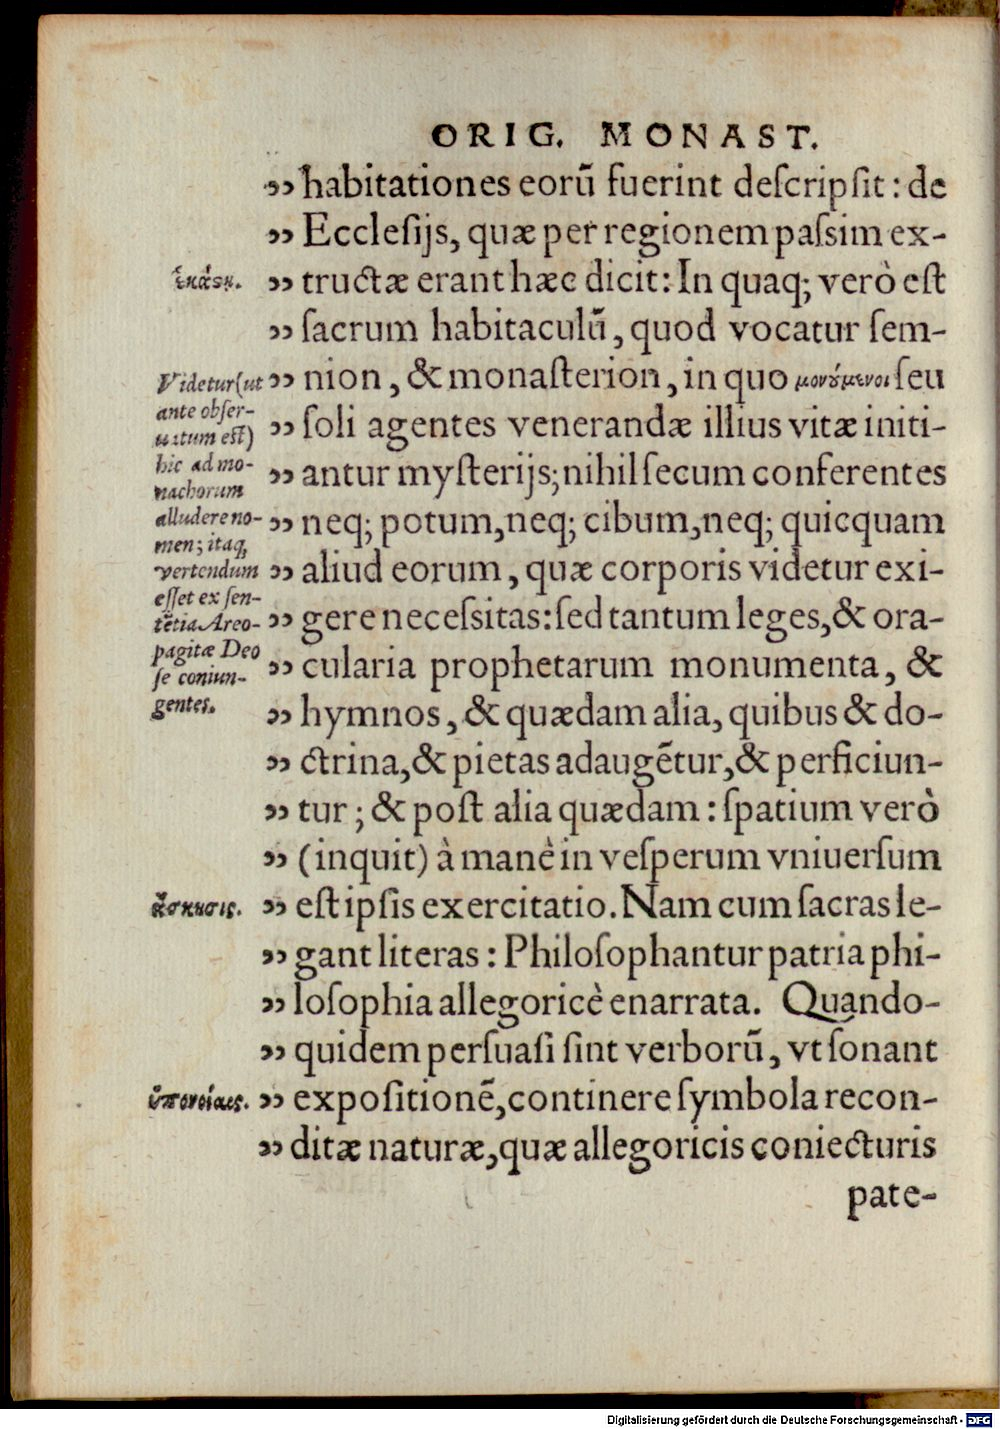 ORIG. MONAST.
„ habitationes eorũ fuerint deſcripſit : de
„ Eccleſijs, quæ per regionem paſsim ex-
„ tructæ erant hæc dicit: In quaq; verò eſt
„ ſacrum habitaculũ, quod vocatur ſem-
„ nion, & monaſterion, in quo μονούμενοι ſeu
„ ſoli agentes venerandæ illius vitæ initi-
„ antur myſterijs; nihil ſecum conferentes
„ neq; potum, neq; cibum, neq; quicquam
„ aliud eorum, quæ corporis videtur exi-
„ gere neceſsitas: ſed tantum leges, & ora-
„ cularia prophetarum monumenta, &
„ hymnos, & quædam alia, quibus & do-
„ ctrina, & pietas adaugẽtur, & perficiun-
„ tur ; & poſt alia quædam : ſpatium verò
„ (inquit) à manè in veſperum vniuerſum
„ eſt ipſis exercitatio. Nam cum ſacras le-
„ gant literas : Philoſophantur patria phi-
„ loſophia allegoricè enarrata. Quando-
„ quidem perſuaſi ſint verborũ, vt ſonant
„ expoſitionẽ, continere ſymbola recon-
„ ditæ naturæ, quæ allegoricis coniecturis
pate-
Videtur (ut
ante obſer-
uatum eſt)
hic ad mo-
nachorum
alludere no-
men; itaq;
vertendum
eſſet ex ſen-
tẽtia Areo-
pagitæ Deo
ſe coniun-
gentes.
ἄσκησις.
ὑπονοίαις.
Digitalisierung gefördert durch die Deutsche Forschungsgemeinschaft - DFG